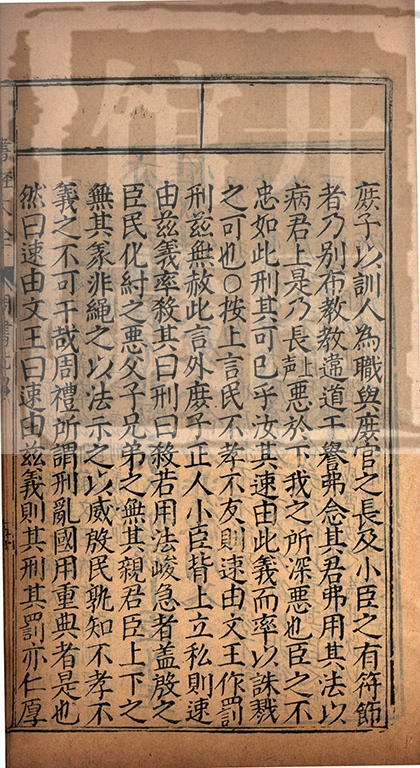 庶子以訓人為職與庶官之長及小臣之有符節
者乃別布教敎違道干譽弗念其君弗用其法以
病君上是乃長上聲惡於下我之所深惡也臣之不
忠如此刑其可已乎汝其速由此義而率以誅戮
之可也○按上言民不孝不友則速由文王作罰
刑茲無赦此言外庶子正人小臣背上立私則速
由茲義率殺其曰刑曰殺若用法峻急者蓋殷之
臣民化紂之惡父子兄弟之無其親君臣上下之
無其義非繩之以法示之以威殷民孰知不孝不
義之不可干哉周禮所謂刑亂國用重典者是也
然曰速由文王曰速由茲義則其刑其罰亦仁厚
書經大全